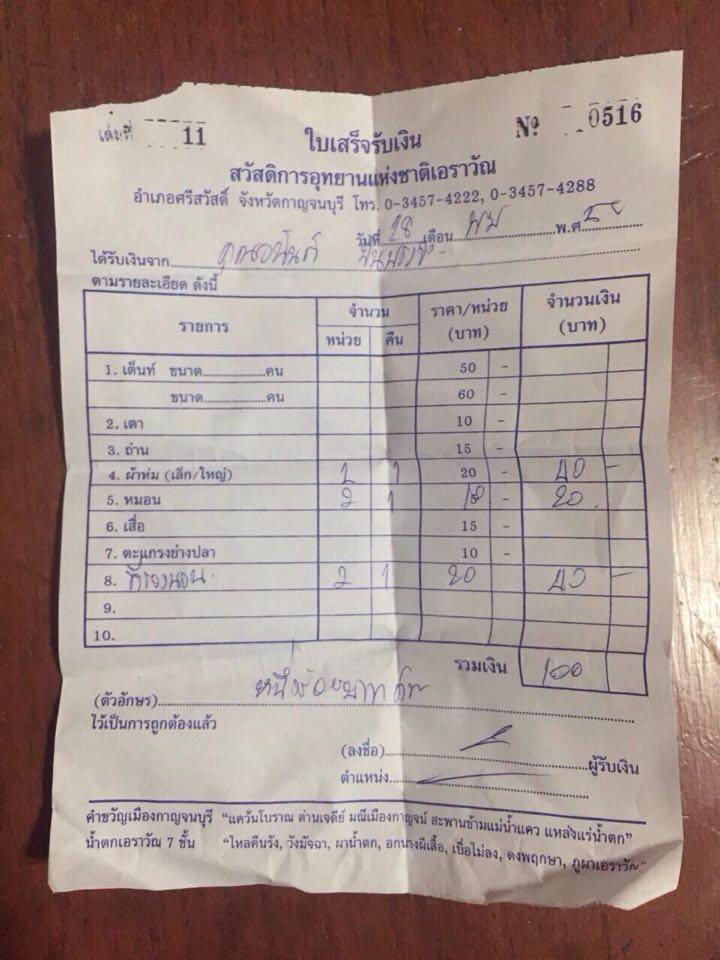 เล่มที่ 11
Nº 0516
ใบเสร็จรับเงิน
สวัสดิการอุทยานแห่งชาติเอราวัณ
อำเภอศรีสวัสดิ์ จังหวัดกาญจนบุรี โทร. 0-3457-4222, 0-3457-4288
วันที่ 18 เดือน พย พ.ศ.
ได้รับเงินจาก คุณอนันต์
ตามรายละเอียด ดังนี้
รายการ จำนวน ราคา/หน่วย จำนวนเงิน
หน่วย คืน (บาท) (บาท)
1. เต็นท์ ขนาด....................คน 50 -
ขนาด....................คน 60 -
2. เตา 10 -
3. ถ่าน 15 -
4. ผ้าห่ม (เล็ก/ใหญ่) 2 1 20 - 40 -
5. หมอน 2 1 10 - 20
6. เสื่อ 15 -
7. ตะแกรงย่างปลา 10 -
8. ที่รองนอน 2 1 20 40 -
9.
10.
รวมเงิน 100
(ตัวอักษร) หนึ่งร้อยบาท
ไว้เป็นการถูกต้องแล้ว
(ลงชื่อ) ผู้รับเงิน
ตำแหน่ง
คำขวัญเมืองกาญจนบุรี "แคว้นโบราณ ด่านเจดีย์ มณีเมืองกาญจน์ สะพานข้ามแม่น้ำแคว แหล่งแร่น้ำตก"
น้ำตกเอราวัณ 7 ชั้น "ไหลคืนรัง, วังมัจฉา, ผาน้ำตก, อกนางผีเสื้อ, เบื่อไม่ลง, ดงพฤกษา, ภูผาเอราวัณ"